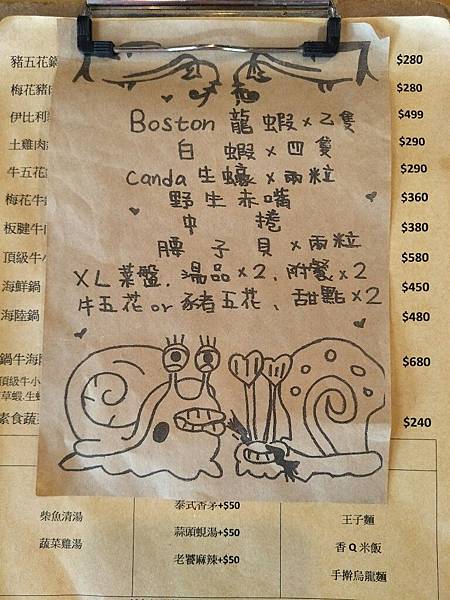 豬五花鍋 $280
梅花豬肉 $280
伊比利 $499
土雞肉 $290
牛五花 $290
梅花牛 $360
板腱牛 $380
頂級牛小 $580
海鮮鍋 $450
海陸鍋 $480
鍋牛海陸 $680
頂級牛小
草蝦.生蠔
素食蔬 $240
Boston 龍蝦×乙隻
白蝦×四隻
Canda 生蠔×兩粒
野生赤嘴
中捲
腰子貝×兩粒
XL菜盤、湯品×2、附餐×2
牛五花or豬五花、甜點×2
柴魚清湯
蔬菜雞湯
泰式香茅+$50
蒜頭蜆湯+$50
老饕麻辣+$50
王子麵
香Q米飯
手擀烏龍麵